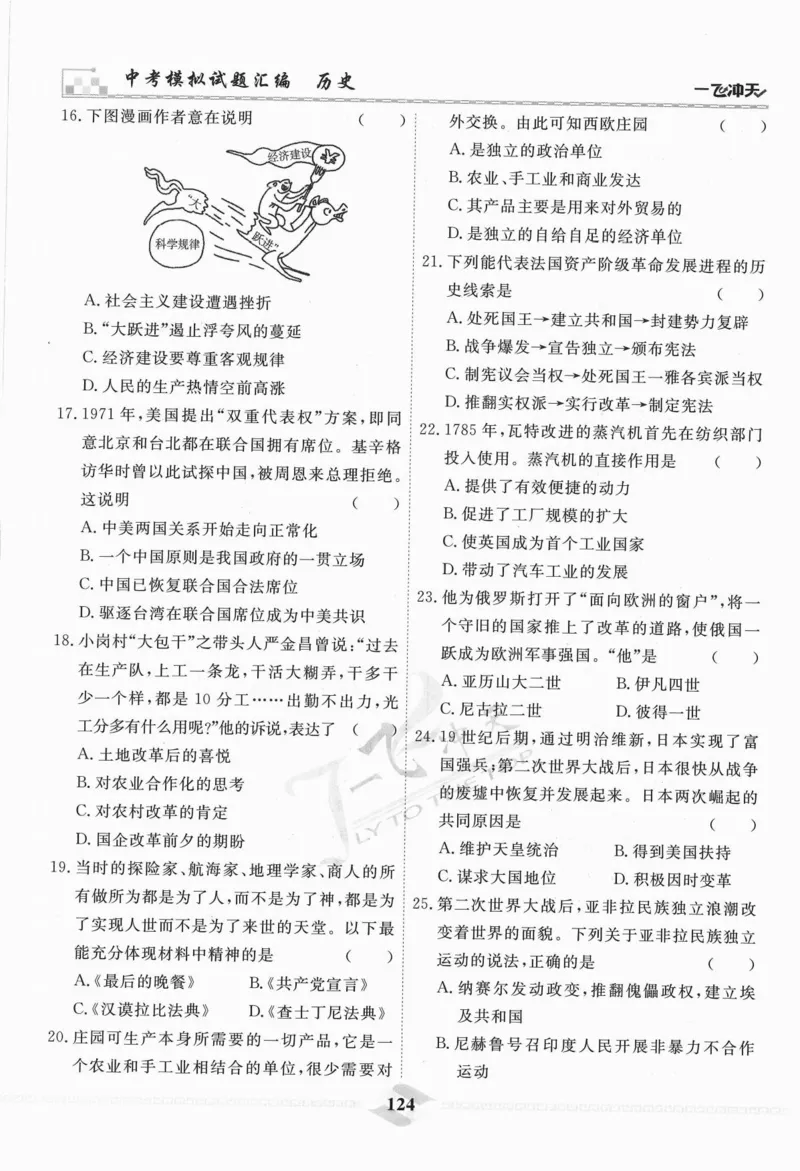 中考模拟试题汇编 历史
一飞冲天
16.下图漫画作者意在说明 ( )
经济建设
"大
跃进"
科学规律
A.社会主义建设遭遇挫折
B."大跃进"遏止浮夸风的蔓延
C.经济建设要尊重客观规律
D.人民的生产热情空前高涨
17.1971年,美国提出"双重代表权"方案,即同
意北京和台北都在联合国拥有席位。基辛格
访华时曾以此试探中国,被周恩来总理拒绝。
这说明 ( )
A.中美两国关系开始走向正常化
B.一个中国原则是我国政府的一贯立场
C.中国已恢复联合国合法席位
D.驱逐台湾在联合国席位成为中美共识
18.小岗村"大包干"之带头人严金昌曾说:"过去
在生产队,上工一条龙,干活大糊弄,干多干
少一个样,都是 10 分工……出勤不出力,光
工分多有什么用呢?"他的诉说,表达了 ( )
A.土地改革后的喜悦
B.对农业合作化的思考
C.对农村改革的肯定
D.国企改革前夕的期盼
19.当时的探险家、航海家、地理学家、商人的所
有做所为都是为了人,而不是为了神,都是为
了实现人世而不是为了来世的天堂。以下最
能充分体现材料中精神的是 ( )
A.《最后的晚餐》 B.《共产党宣言》
C.《汉谟拉比法典》 D.《查士丁尼法典》
20.庄园可生产本身所需要的一切产品,它是一
个农业和手工业相结合的单位,很少需要对
外交换。由此可知西欧庄园 ( )
A.是独立的政治单位
B.农业、手工业和商业发达
C.其产品主要是用来对外贸易的
D.是独立的自给自足的经济单位
21.下列能代表法国资产阶级革命发展进程的历
史线索是 ( )
A.处死国王→建立共和国→封建势力复辟
B.战争爆发→宣告独立→颁布宪法
C.制宪议会当权→处死国王一雅各宾派当权
D.推翻实权派→实行改革→制定宪法
22.1785年,瓦特改进的蒸汽机首先在纺织部门
投入使用。蒸汽机的直接作用是 ( )
A.提供了有效便捷的动力
B.促进了工厂规模的扩大
C.使英国成为首个工业国家
D.带动了汽车工业的发展
23.他为俄罗斯打开了"面向欧洲的窗户",将一
个守旧的国家推上了改革的道路,使俄国一
跃成为欧洲军事强国。"他"是 ( )
A.亚历山大二世 B.伊凡四世
C.尼古拉二世 D.彼得一世
24.19世纪后期,通过明治维新,日本实现了富
国强兵;第二次世界大战后,日本很快从战争
的废墟中恢复并发展起来。日本两次崛起的
共同原因是 ( )
A.维护天皇统治 B.得到美国扶持
C.谋求大国地位 D.积极因时变革
25.第二次世界大战后,亚非拉民族独立浪潮改
变着世界的面貌。下列关于亚非拉民族独立
运动的说法,正确的是 ( )
A.纳赛尔发动政变,推翻傀儡政权,建立埃
及共和国
B.尼赫鲁号召印度人民开展非暴力不合作
运动
一飞冲天
FLY TO THE TOP
124